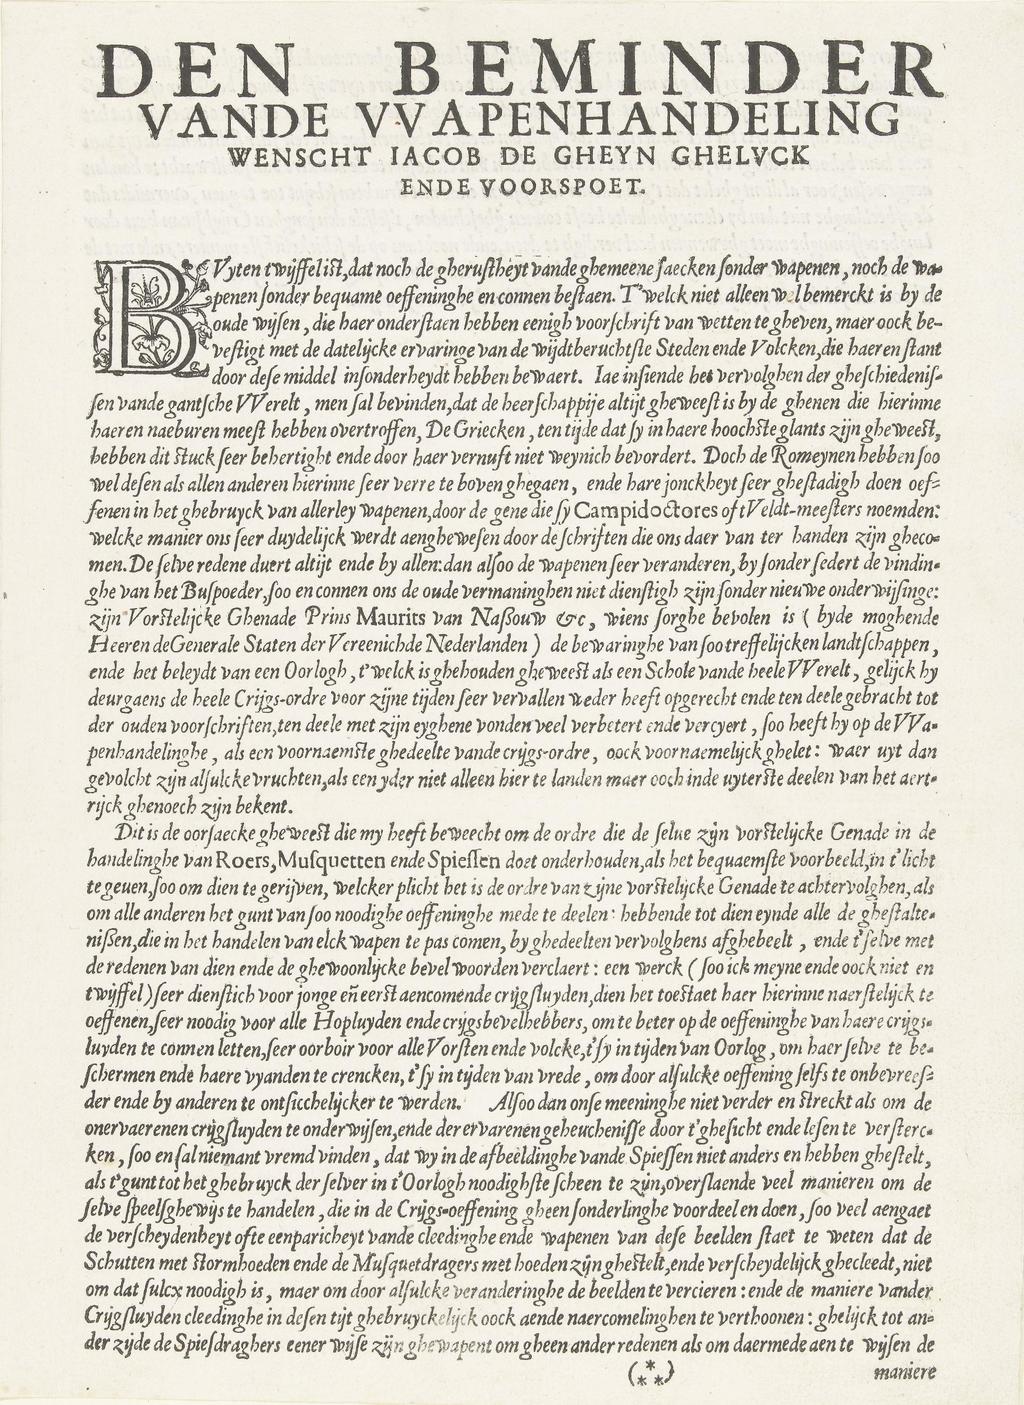 DEN BEMINDER
VANDE VVAPENHANDELING
WENSCHT IACOB DE GHEYN GHELVCK
ENDE VOORSPOET.
BVyten twijffel ist, dat noch de gherustheyt vande ghemeene saecken sonder wapenen, noch de wa-
penen sonder bequame oeffeninghe en connen bestaen. T'welck niet alleen wel bemerckt is by de
oude wijsen, die haer onderstaen hebben eenigh voorschrift van wetten te gheven, maer oock be-
vestigt met de datelijcke ervaringe van de wijdtberuchtste Steden ende Volcken, die haeren stant
door dese middel insonderheydt hebben bewaert. Iae insiende het vervolghen der gheschiedenis-
sen vande gantsche VVerelt, men sal bevinden, dat de heerschappije altijt gheweest is by de ghenen die hierinne
haeren naeburen meest hebben overtroffen, De Griecken, ten tijde dat sy in haere hoochste glants zijn gheweest,
hebben dit stuck seer behertight ende door haer vernuft niet weynich bevordert. Doch de Romeynen hebben soo
wel desen als allen anderen hierinne seer verre te boven ghegaen, ende hare jonckheyt seer ghestadigh doen oef-
fenen in het ghebruyck van allerley wapenen, door de gene die sy Campidoctores oft Veldt-meesters noemden:
welcke manier ons seer duydelijck werdt aenghewesen door de schriften die ons daer van ter handen zijn gheco-
men. De selve redene duert altijt ende by allen: dan alsoo de wapenen seer veranderen, by sonder sedert de vindin-
ghe van het Buspoeder, soo en connen ons de oude vermaninghen niet dienstigh zijn sonder nieuwe onderwijsinge:
zijn Vorstelijcke Ghenade Prins Maurits van Nassouw &c, wiens sorghe bevolen is ( byde moghende
Heeren de Generale Staten der Vereenichde Nederlanden ) de bewaringhe van soo treffelijcken landtschappen,
ende het beleydt van een Oorlogh, t'welck is ghehouden gheweest als een Schole vande heele VVerelt, gelijck hy
deurgaens de heele Crijgs-ordre voor zijne tijden seer vervallen weder heeft opgerecht ende ten deele gebracht tot
der ouden voorschriften, ten deele met zijn eyghene vonden veel verbetert ende vercyert, soo heeft hy op de VVa-
penhandelinghe, als een voornaemste ghedeelte vande crijgs-ordre, oock voornaemelijck ghelet: waer uyt dan
gevolcht zijn alsulcke vruchten, als een yder niet alleen hier te landen maer oock inde uyterste deelen van het aert-
rijck ghenoech zijn bekent.
Dit is de oorsaecke gheweest die my heeft beweecht om de ordre die de selue zijn vorstelijcke Genade in de
handelinghe van Roers, Musquetten ende Spiessen doet onderhouden, als het bequaemste voorbeeld, in t'licht
te geuen, soo om dien te gerijven, welcker plicht het is de ordre van zijne vorstelijcke Genade te achtervolghen, als
om alle anderen het gunt van soo noodighe oeffeninghe mede te deelen: hebbende tot dien eynde alle de ghestalte-
nissen, die in het handelen van elck wapen te pas comen, by ghedeelten vervolghens afghebeelt, ende t'selve met
de redenen van dien ende de ghewoonlijcke bevelwoorden verclaert: een werck ( soo ick meyne ende oock niet en
twijffel ) seer dienstich voor jonge eñ eerst aencomende crijgsluyden, dien het toestaet haer hierinne naerstelijck te
oeffenen, seer noodig voor alle Hopluyden ende crijgsbevelhebbers, om te beter op de oeffeninghe van haere crijgs-
luyden te connen letten, seer oorboir voor alle Vorsten ende volcke, t'sy in tijden van Oorlog, om haer selve te be-
schermen ende haere vyanden te crencken, t'sy in tijden van vrede, om door alsulcke oeffening selfs te onbevrees-
der ende by anderen te ontsicchelijcker te werden. Alsoo dan onse meeninghe niet verder en streckt als om de
onervaerenen crijgsluyden te onderwijsen, ende der ervarenen geheuchenisse door t'ghesicht ende lesen te verster-
ken, soo en sal niemant vremd vinden, dat wy in de afbeeldinghe vande Spiessen niet anders en hebben ghestelt,
als t'gunt tot het ghebruyck der selver in t'Oorlogh noodighste scheen te zijn, overslaende veel manieren om de
selve speelsghewijs te handelen, die in de Crijgs-oeffening gheen sonderlinghe voordeel en doen, soo veel aengaet
de verscheydenheyt ofte eenparicheyt vande cleedinghe ende wapenen van dese beelden staet te weten dat de
Schutten met stormhoeden ende de Musquetdragers met hoeden zijn ghestelt, ende verscheydelijck ghecleedt, niet
om dat sulcx noodigh is, maer om door alsulcke veranderinghe de beelden te vercieren: ende de maniere vander
Crijgsluyden cleedinghe in desen tijt ghebruyckelijck oock aende naercomelinghen te verthoonen: ghelijck tot an-
der zijde de Spiesdraghers eener wijse zijn ghewapent om gheen ander redenen als om daermede aen te wijsen de
(***) maniere